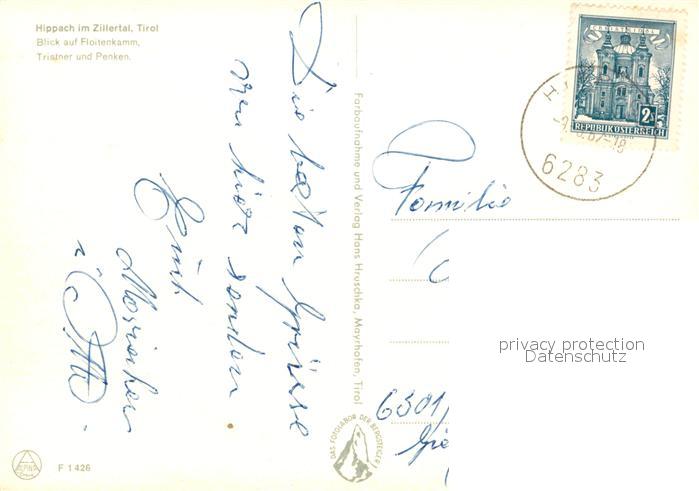 Hippach im Zillertal, Tirol
Blick auf Floitenkamm,
Tristner und Penken.
Die besten Grüsse
von hier senden
Marianchen
u. Otto
F 1426
Farbaufnahme und Verlag Hans Hruschka, Mayrhofen, Tirol
DAS FOTOLABOR DER BERGSTEIGER
CHRISTKINDL
2S
REPUBLIK ÖSTERREICH
6283
Familie
6301
privacy protection
Datenschutz